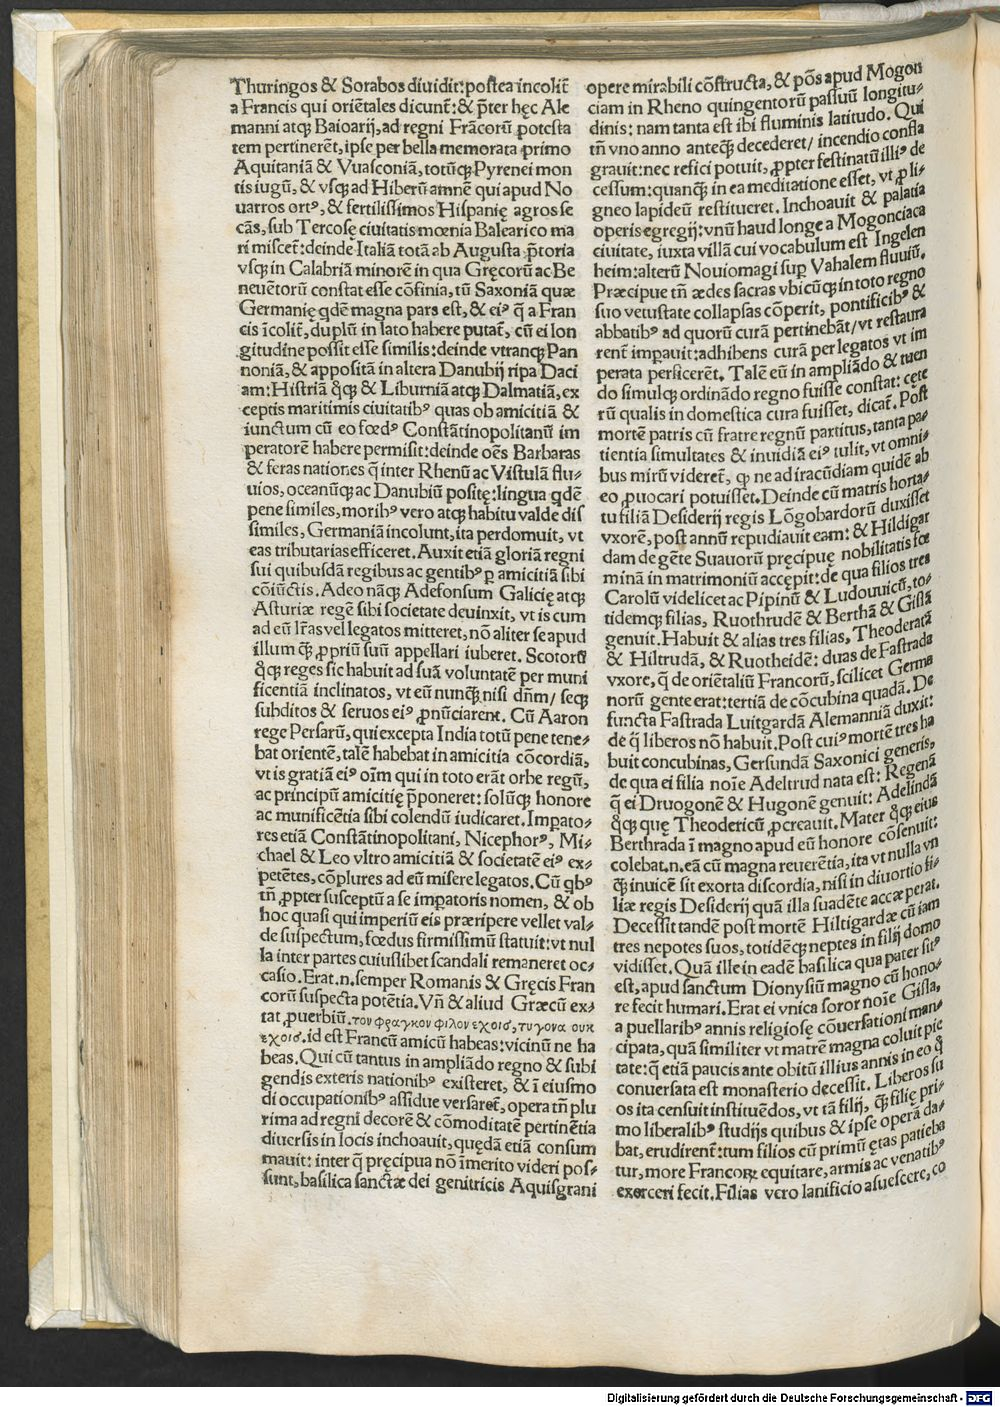 Thuringos & Sorabos diuidit: postea incolūt̄
a Francis qui oriētales dicunt̄: & p̄ter hęc Ale
manni atqꝫ Baioarij, ad regni Frācorū potesta
tem pertinerēt, ipse per bella memorata primo
Aquitaniā & Vuasconiā, totūqꝫ Pyrenei mon
tis iugū, & vsqꝫ ad Hiberū amnē qui apud No
uarros ortꝰ, & fertilissimos Hispanię agros se
cās, sub Tercosę ciuitatis mœnia Balearico ma
ri miscet̄: deinde Italiā totā ab Augusta p̄toria
vsqꝫ in Calabriā minorē in qua Gręcorū ac Be
neuētorū constat esse cōfinia, tū Saxoniā quæ
Germanię qdē magna pars est, & eiꝰ q̄ a Fran
cis īcolit̄, duplū in lato habere putat̄, cū ei lon
gitudine possit esse similis: deinde vtranqꝫ Pan
noniā, & appositā in altera Danubij ripa Daci
am: Histriā q̊qꝫ & Liburniā atqꝫ Dalmatiā, ex
ceptis maritimis ciuitatibꝰ quas ob amicitiā &
iunctum cū eo fœdꝰ Constātinopolitanū im
peratorē habere permisit: deinde oēs Barbaras
& feras nationes q̄ inter Rhenū ac Vistulā flu⸗
uios, oceanūqꝫ ac Danubiū positę: lingua qdē
pene similes, moribꝰ vero atqꝫ habitu valde dis
similes, Germaniā incolunt, ita perdomuit, vt
eas tributarias efficeret. Auxit etiā gloriā regni
sui quibusdā regibus ac gentibꝰ ꝑ amicitiā sibi
cōiūctis. Adeo nāqꝫ Adefonsum Galicię atqꝫ
Asturiæ regē sibi societate deuinxit, vt is cum
ad eū lr̄as vel legatos mitteret, nō aliter se apud
illum q̄ꝫ ꝓpriū suū appellari iuberet. Scotorū
q̊qꝫ reges sic habuit ad suā voluntatē per muni
ficentiā inclinatos, vt eū nunqꝫ nisi dn̄m / seqꝫ
subditos & seruos eiꝰ ꝓnūciarent. Cū Aaron
rege Persarū, qui excepta India totū pene tene⸗
bat orientē, talē habebat in amicitia cōcordiā,
vt is gratiā eiꝰ oīm qui in toto erāt orbe regū,
ac principū amicitię p̄poneret: solūqꝫ honore
ac munificētia sibi colendū iudicaret. Imꝑato⸗
res etiā Constātinopolitani, Nicephorꝰ, Mi⸗
chael & Leo vltro amicitiā & societatē eiꝰ ex⸗
petētes, cōplures ad eū misere legatos. Cū qbꝰ
tn̄ ꝓpter susceptū a se imꝑatoris nomen, & ob
hoc quasi qui imperiū eis præripere vellet val⸗
de suspectum, fœdus firmissimū statuit: vt nul
la inter partes cuiuslibet scandali remaneret oc⸗
casio. Erat.n. semper Romanis & Gręcis Fran
corū suspecta potētia. Vn̄ & aliud Græcū ex⸗
tat ꝓuerbiū. τον φραγκον φιλον εχοισ, τυγονα ουκ
εχοισ. id est Francū amicū habeas: vicinū ne ha
beas. Qui cū tantus in ampliādo regno & subi
gendis exteris nationibꝰ existeret, & ī eiusmo
di occupationibꝰ assidue versaret̄, opera tn̄ plu
rima ad regni decorē & cōmoditatē pertinētia
diuersis in locis inchoauit, quędā etiā consum
mauit: inter q̄ pręcipua nō īmerito videri pos⸗
sunt, basilica sanctæ dei genitricis Aquisgrani
opere mirabili cōstructa, & pōs apud Mogon
ciam in Rheno quingentorū passuū longitu⸗
dinis: nam tanta est ibi fluminis latitudo. Qui
tn̄ vno anno anteqꝫ decederet / incendio confla
grauit: nec refici potuit, ꝓpter festinatū illiꝰ de
cessum: quanqꝫ in ea meditatione esset, vt ꝓ li⸗
gneo lapideū restitueret. Inchoauit & palatia
operis egregij: vnū haud longe a Mogonciaca
ciuitate, iuxta villā cui vocabulum est Ingelen
heim: alterū Nouiomagi suꝑ Vahalem fluuiū.
Præcipue tn̄ ædes sacras vbicūqꝫ in toto regno
suo vetustate collapsas cōperit, pontificibꝰ &
abbatibꝰ ad quorū curā pertinebāt / vt restaura
rent̄ impauit: adhibens curā per legatos vt im
perata perficerēt. Talē eū in ampliādo & tuen
do simulqꝫ ordinādo regno fuisse constat: cęte
rū qualis in domestica cura fuisset, dicat̄. Post
mortē patris cū fratre regnū partitus, tanta pa⸗
tientia simultates & inuidiā eiꝰ tulit, vt omni⸗
bus mirū videret̄, ꝙ ne ad iracūdiam quidē ab
eo ꝓuocari potuisset. Deinde cū matris horta⸗
tu filiā Desiderij regis Lōgobardorū duxisset
vxorē, post annū repudiauit eam: & Hildigar
dam de gēte Suauorū pręcipuę nobilitatis fœ
minā in matrimoniū accępit: de qua filios tres
Carolū videlicet ac Pipinū & Ludouuicū, to⸗
tidemqꝫ filias, Ruothrudē & Berthā & Gislā
genuit. Habuit & alias tres filias, Theoderatā
& Hiltrudā, & Ruotheidē: duas de Fastrada
vxore, q̄ de oriētaliū Francorū, scilicet Germa
norū gente erat: tertiā de cōcubina quadā. De
functa Fastrada Luitgardā Alemanniā duxit:
de q̄ liberos nō habuit. Post cuiꝰ mortē tres ha
buit concubinas, Gersundā Saxonici generis,
de qua ei filia noīe Adeltrud nata est: Regenā
q̄ ei Druogonē & Hugonē genuit: Adelindā
q̊qꝫ quę Theodericū ꝓcreauit. Mater q̊qꝫ eius
Berthrada ī magno apud eū honore cōsenuit:
colebat.n. eā cū magna reuerētia, ita vt nulla vn
q̄ꝫ inuicē sit exorta discordia, nisi in diuortio fi⸗
liæ regis Desiderij quā illa suadēte accæperat.
Decessit tandē post mortē Hiltigardæ cū iam
tres nepotes suos, totidēqꝫ neptes in filij domo
vidisset. Quā ille in eadē basilica qua pater sitꝰ
est, apud sanctum Dionysiū magno cū hono⸗
re fecit humari. Erat ei vnica soror noīe Gisla,
a puellaribꝰ annis religiosę cōuersationi man⸗
cipata, quā similiter vt matrē magna coluit pie
tate: q̄ etiā paucis ante obitū illius annis in eo q̊
conuersata est monasterio decessit. Liberos su
os ita censuit instituēdos, vt tā filij, q̄ꝫ filię pri⸗
mo liberalibꝰ studijs quibus & ipse operā da⸗
bat, erudirent̄: tum filios cū primū ętas patieba
tur, more Francorꝝ equitare, armis ac venatibꝰ
exerceri fecit. Filias vero lanificio asuescere, co
Digitalisierung gefördert durch die Deutsche Forschungsgemeinschaft - DFG